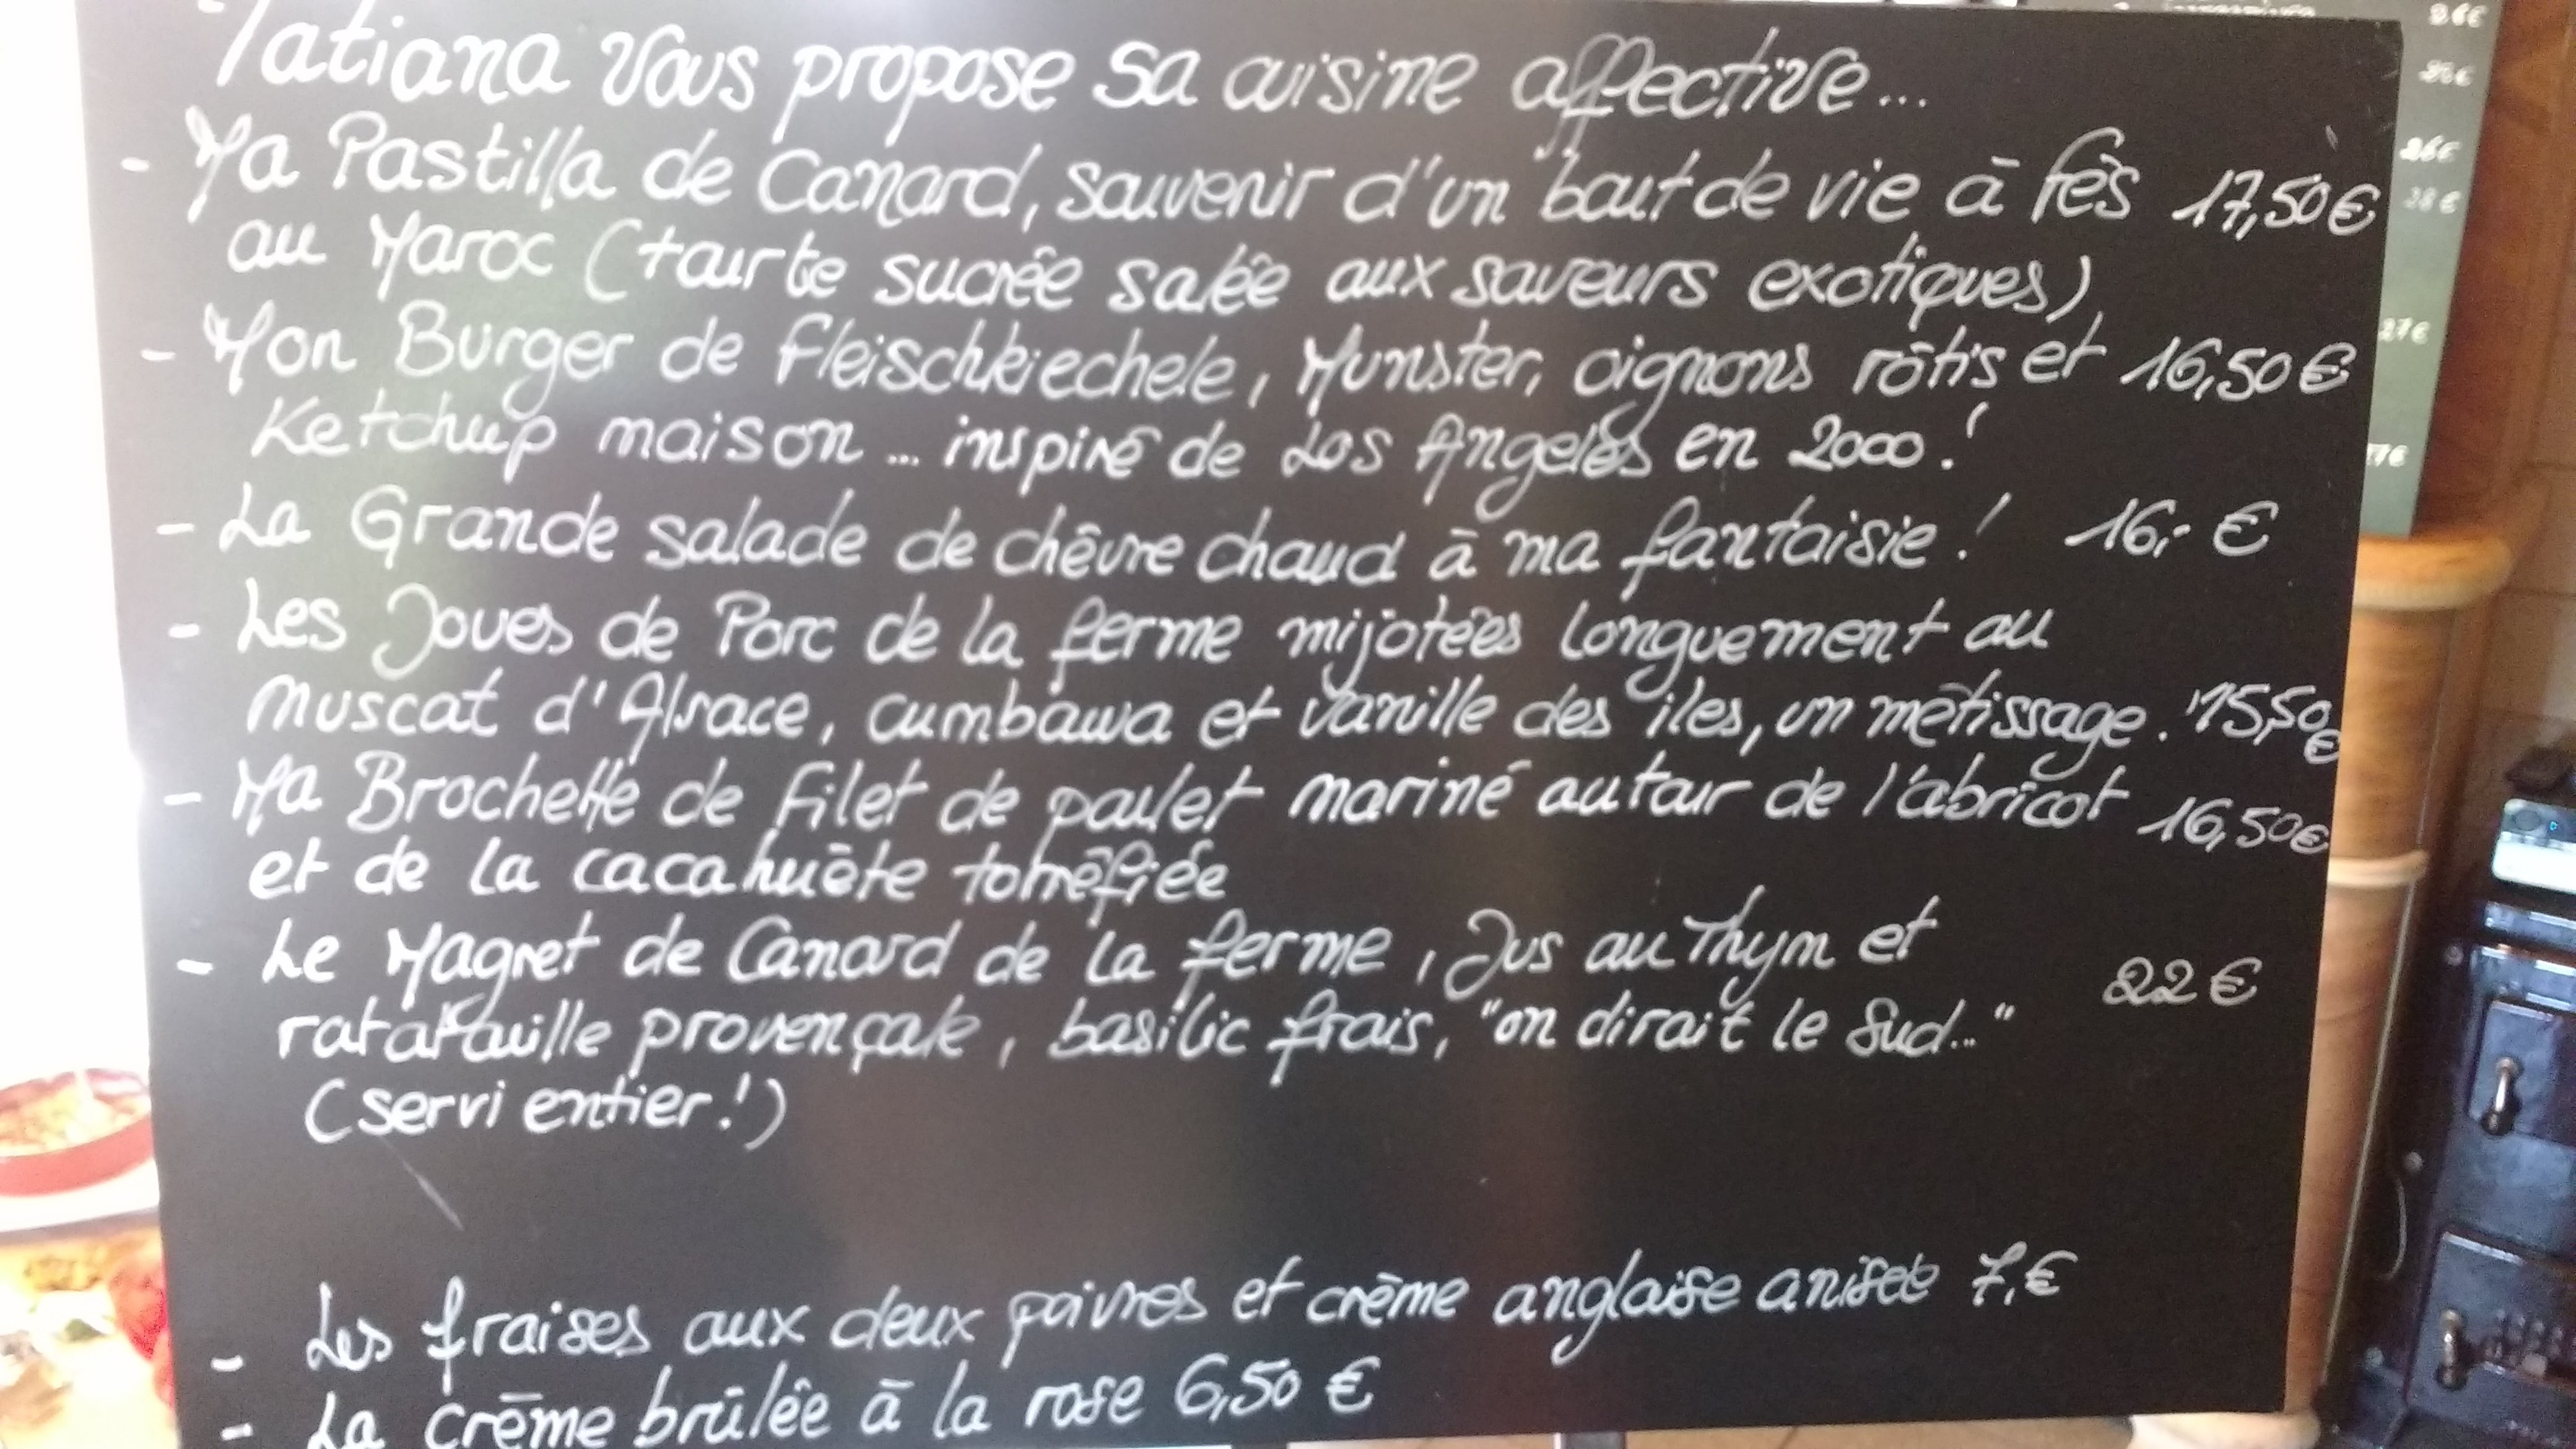 Tatiana Vous propose sa cuisine affective...
- Ma Pastilla de Canard, souvenir d'un bout de vie à Fès 17,50€
au Maroc (tourte sucrée salée aux saveurs exotiques)
- Mon Burger de Fleischkiechele, Munster, oignons rôtis et 16,50€
Ketchup maison... inspiré de Los Angeles en 2000!
- La Grande salade de chèvre chaud à ma fantaisie! 16,- €
- Les Joues de Porc de la ferme mijotées longuement au
muscat d'Alsace, cumbawa et vanille des îles, un métissage. 15,50€
- Ma Brochette de Filet de poulet mariné autour de l'abricot 16,50€
et de la cacahuète torréfiée
- Le Magret de Canard de la ferme, Jus au Thym et 22€
ratatouille provençale, basilic frais, "on dirait le Sud..."
(servi entier!)
- Les fraises aux deux poivres et crème anglaise anisée 7,€
- La crème brûlée à la rose 6,50 €
26€
26€
28€
27€